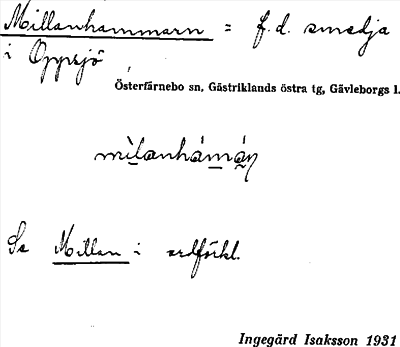 Millanhammarn = f.d. smedja
i Oppsjö
Österfärnebo sn, Gästriklands östra tg, Gävleborgs l.
mìlanhámán
Se Millan i ordförkl.
Ingegärd Isaksson 1931